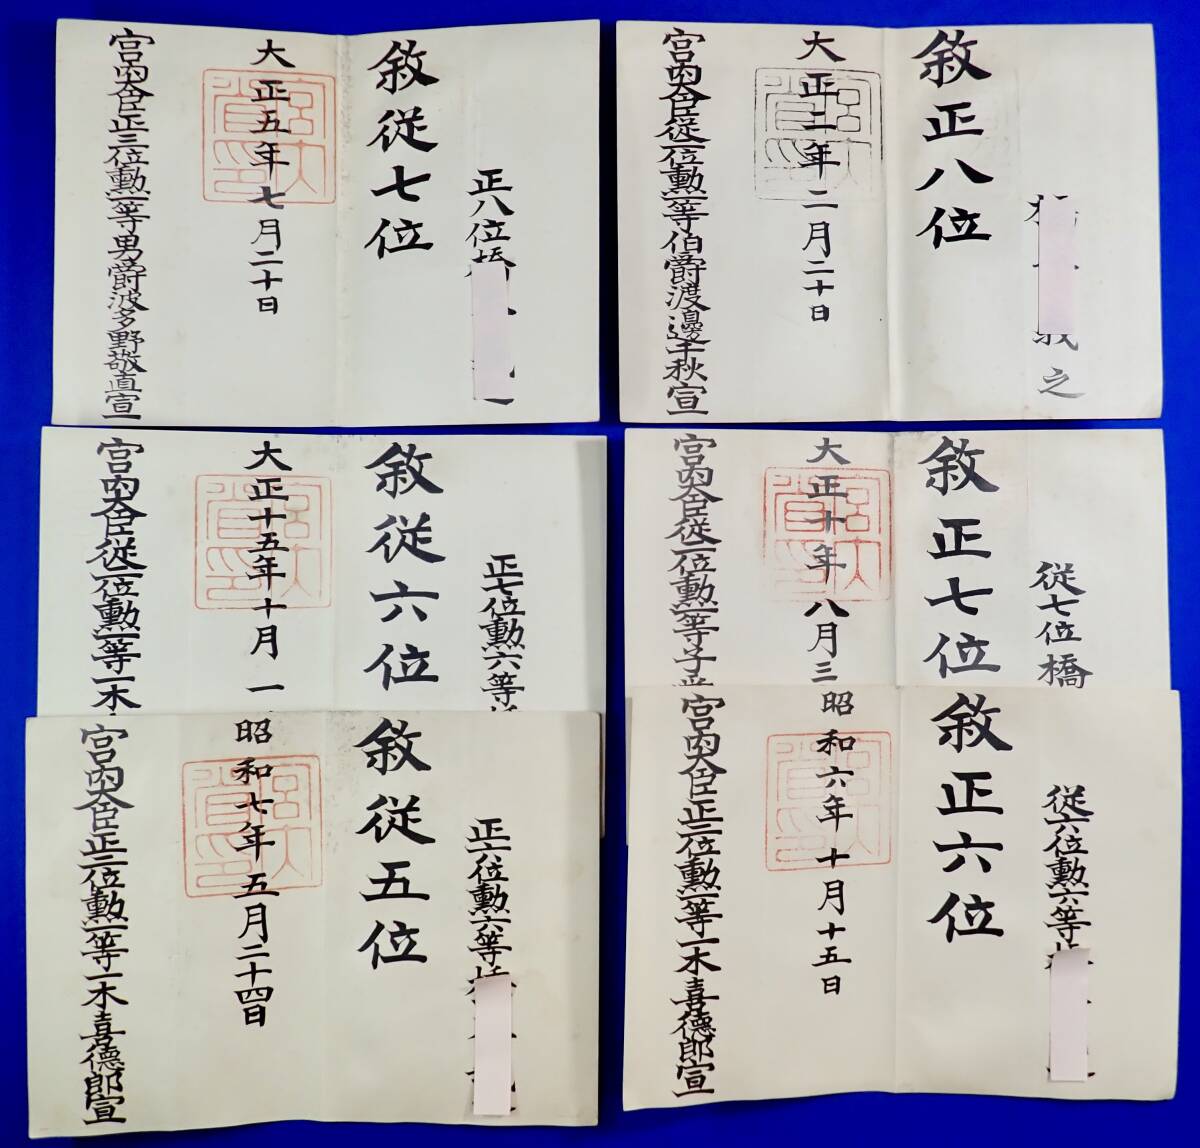 義之
敘正八位
大正二年二月二十日
宮內大臣從二位勳一等伯爵渡邊千秋宣
正八位橋
敘從七位
大正五年七月二十日
宮內大臣正三位勳一等男爵波多野敬直宣
從七位橋
敘正七位
大正十年八月三
宮內大臣從二位勳一等子爵
正七位勳六等
敘從六位
大正十五年十月一
宮內大臣從二位勳一等一木
從六位勳六等
敘正六位
昭和六年十月十五日
宮內大臣正二位勳一等一木喜德郎宣
正六位勳六等
敘從五位
昭和七年五月二十四日
宮內大臣正二位勳一等一木喜德郎宣